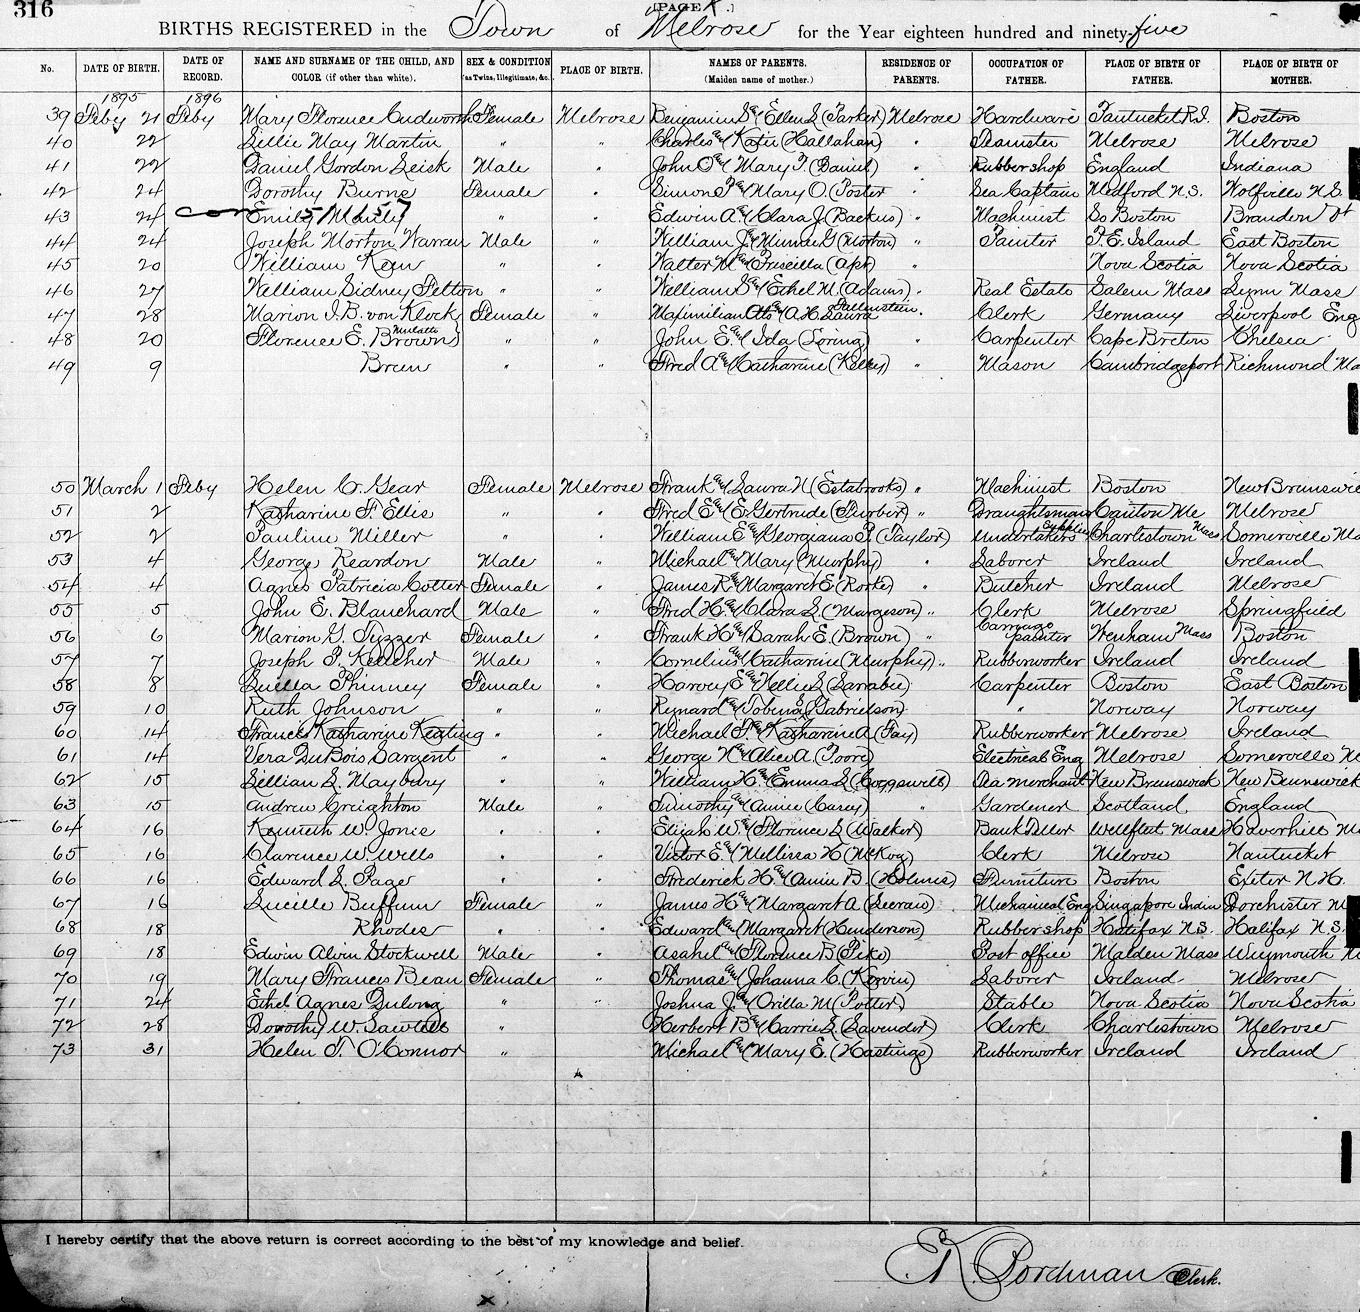 316
[PAGE .]
BIRTHS REGISTERED in the Town of Melrose for the Year eighteen hundred and ninety-five
No. DATE OF BIRTH. DATE OF RECORD. NAME AND SURNAME OF THE CHILD, AND COLOR (if other than white). SEX & CONDITION (as Twins, Illegitimate, &c. PLACE OF BIRTH. NAMES OF PARENTS. (Maiden name of mother.) RESIDENCE OF PARENTS. OCCUPATION OF FATHER. PLACE OF BIRTH OF FATHER. PLACE OF BIRTH OF MOTHER.
1895 1896
39 Feby 21 Feby Mary Florence Cudworth Female Melrose Benjamin & Ellen L (Parker) Melrose Hardware Pawtucket R.I. Boston
40 22 Lillie May Martin " " Charles and Katie (Hallahan) " Teamster Melrose Melrose
41 22 Daniel Gordon Leisk Male " John O and Mary T. (Daniel) " Rubber shop England Indiana
42 24 Dorothy Burns Female " Simon P. and Mary O. (Foster " Sea Captain Medford N.S. Wolfville N.S.
43 24 Con 5157 " " Edwin A. and Clara J. (Backus) " Machinist So Boston Brandon Vt
44 24 Joseph Morton Warren Male " William J. and Minnie G (Morton) " Painter P.E. Island East Boston
45 20 William Keen " " Walter M and Priscilla (Apt) " Nova Scotia Nova Scotia
46 27 William Sidney Felton " " William S. and Ethel M. (Adams) " Real Estate Salem Mass Lynn Mass
47 28 Marion I.B. von Klock Female " Maximilian Otto and A.H. Laura " Clerk Germany Liverpool Eng
48 20 Florence E. Brown} Mulatto " " John E. and Ida (Loring) " Carpenter Cape Breton Chelsea
49 9 Breen " " Fred A and Catharine (Kelley) " Mason Cambridgeport Richmond Ma
50 March 1 Feby Helen C. Gear Female Melrose Frank and Laura N (Estabrooks) " Machinist Boston New Brunswic
51 2 Katharine F. Ellis " " Fred E and E. Gertrude (Furber) " Draughtsman Canton Me Melrose
52 2 Pauline Miller " " William E. and Georgiana P. (Taylor) Undertakers Supplies Charlestown Mass Somerville Ma
53 4 George Reardon Male " Michael and Mary (Murphy) " Laborer Ireland Ireland
54 4 Agnes Patricia Cotter Female " James R. and Margaret E (Rorke) " Butcher Ireland Melrose
55 5 John E. Blanchard Male " Fred H. and Clara L. (Margeson) " Clerk Melrose Springfield
56 6 Marion G. Tyzzer Female " Frank H and Sarah E. (Brown) " Carriage painter Wenham Mass Boston
57 7 Joseph P. Kelleher Male " Cornelius and Catharine (Murphy) " Rubberworker Ireland Ireland
58 8 Luella Phinney Female " Harvey E and Nellie L (Larrabee) Carpenter Boston East Boston
59 10 Ruth Johnson " " Reynard and Tobena S (Gabrielson) " Norway Norway
60 14 Frances Katharine Keating " " Michael F. and Katharine A (Fay) Rubberworker Melrose Ireland
61 14 Vera DuBois Sargent " " George N. and Alice A. (Poore) Electrical Eng Melrose Somerville M
62 15 Lillian L. Maybury " " William H. and Emma L (Coggswell) Tea merchant New Brunswick New Brunswick
63 15 Andrew Creighton Male " Timothy and Annie (Carey) " Gardener Scotland England
64 16 Kenneth W. Jones " " Elijah W. and Florence L (Walker) Bank Teller Wellfleet Mass Haverhill Ma
65 16 Clarence W. Wells " " Victor E. and Mellissa H (McKoy) Clerk Melrose Nantucket
66 16 Edward L. Page " " Frederick H. and Annie B. (Holmes) Furniture Boston Exeter N.H.
67 16 Lucille Buffum Female " James H and Margaret A. Mechanical Eng Singapore India Dorchester M
68 18 Rhodes " " Edward and Margaret (Henderson) Rubber shop Halifax N.S. Halifax N.S.
69 18 Edwin Alvin Stockwell Male " Asahel and Florence B (Pike) Post office Malden Mass Weymouth M
70 19 Mary Frances Bean Female " Thomas and Johanna C. (Kervin) Laborer Ireland Melrose
71 24 Ethel Agnes Dulong " " Joshua J. and Orilla M (Potter) Stable Nova Scotia Nova Scotia
72 28 Dorothy W. Sawtell " Herbert B and Carrie L (Lavender) Clerk Charlestown Melrose
73 31 Helen F. O'Connor " Michael and Mary E. (Hastings) Rubberworker Ireland Ireland
I hereby certify that the above return is correct according to the best of my knowledge and belief.
Clerk.